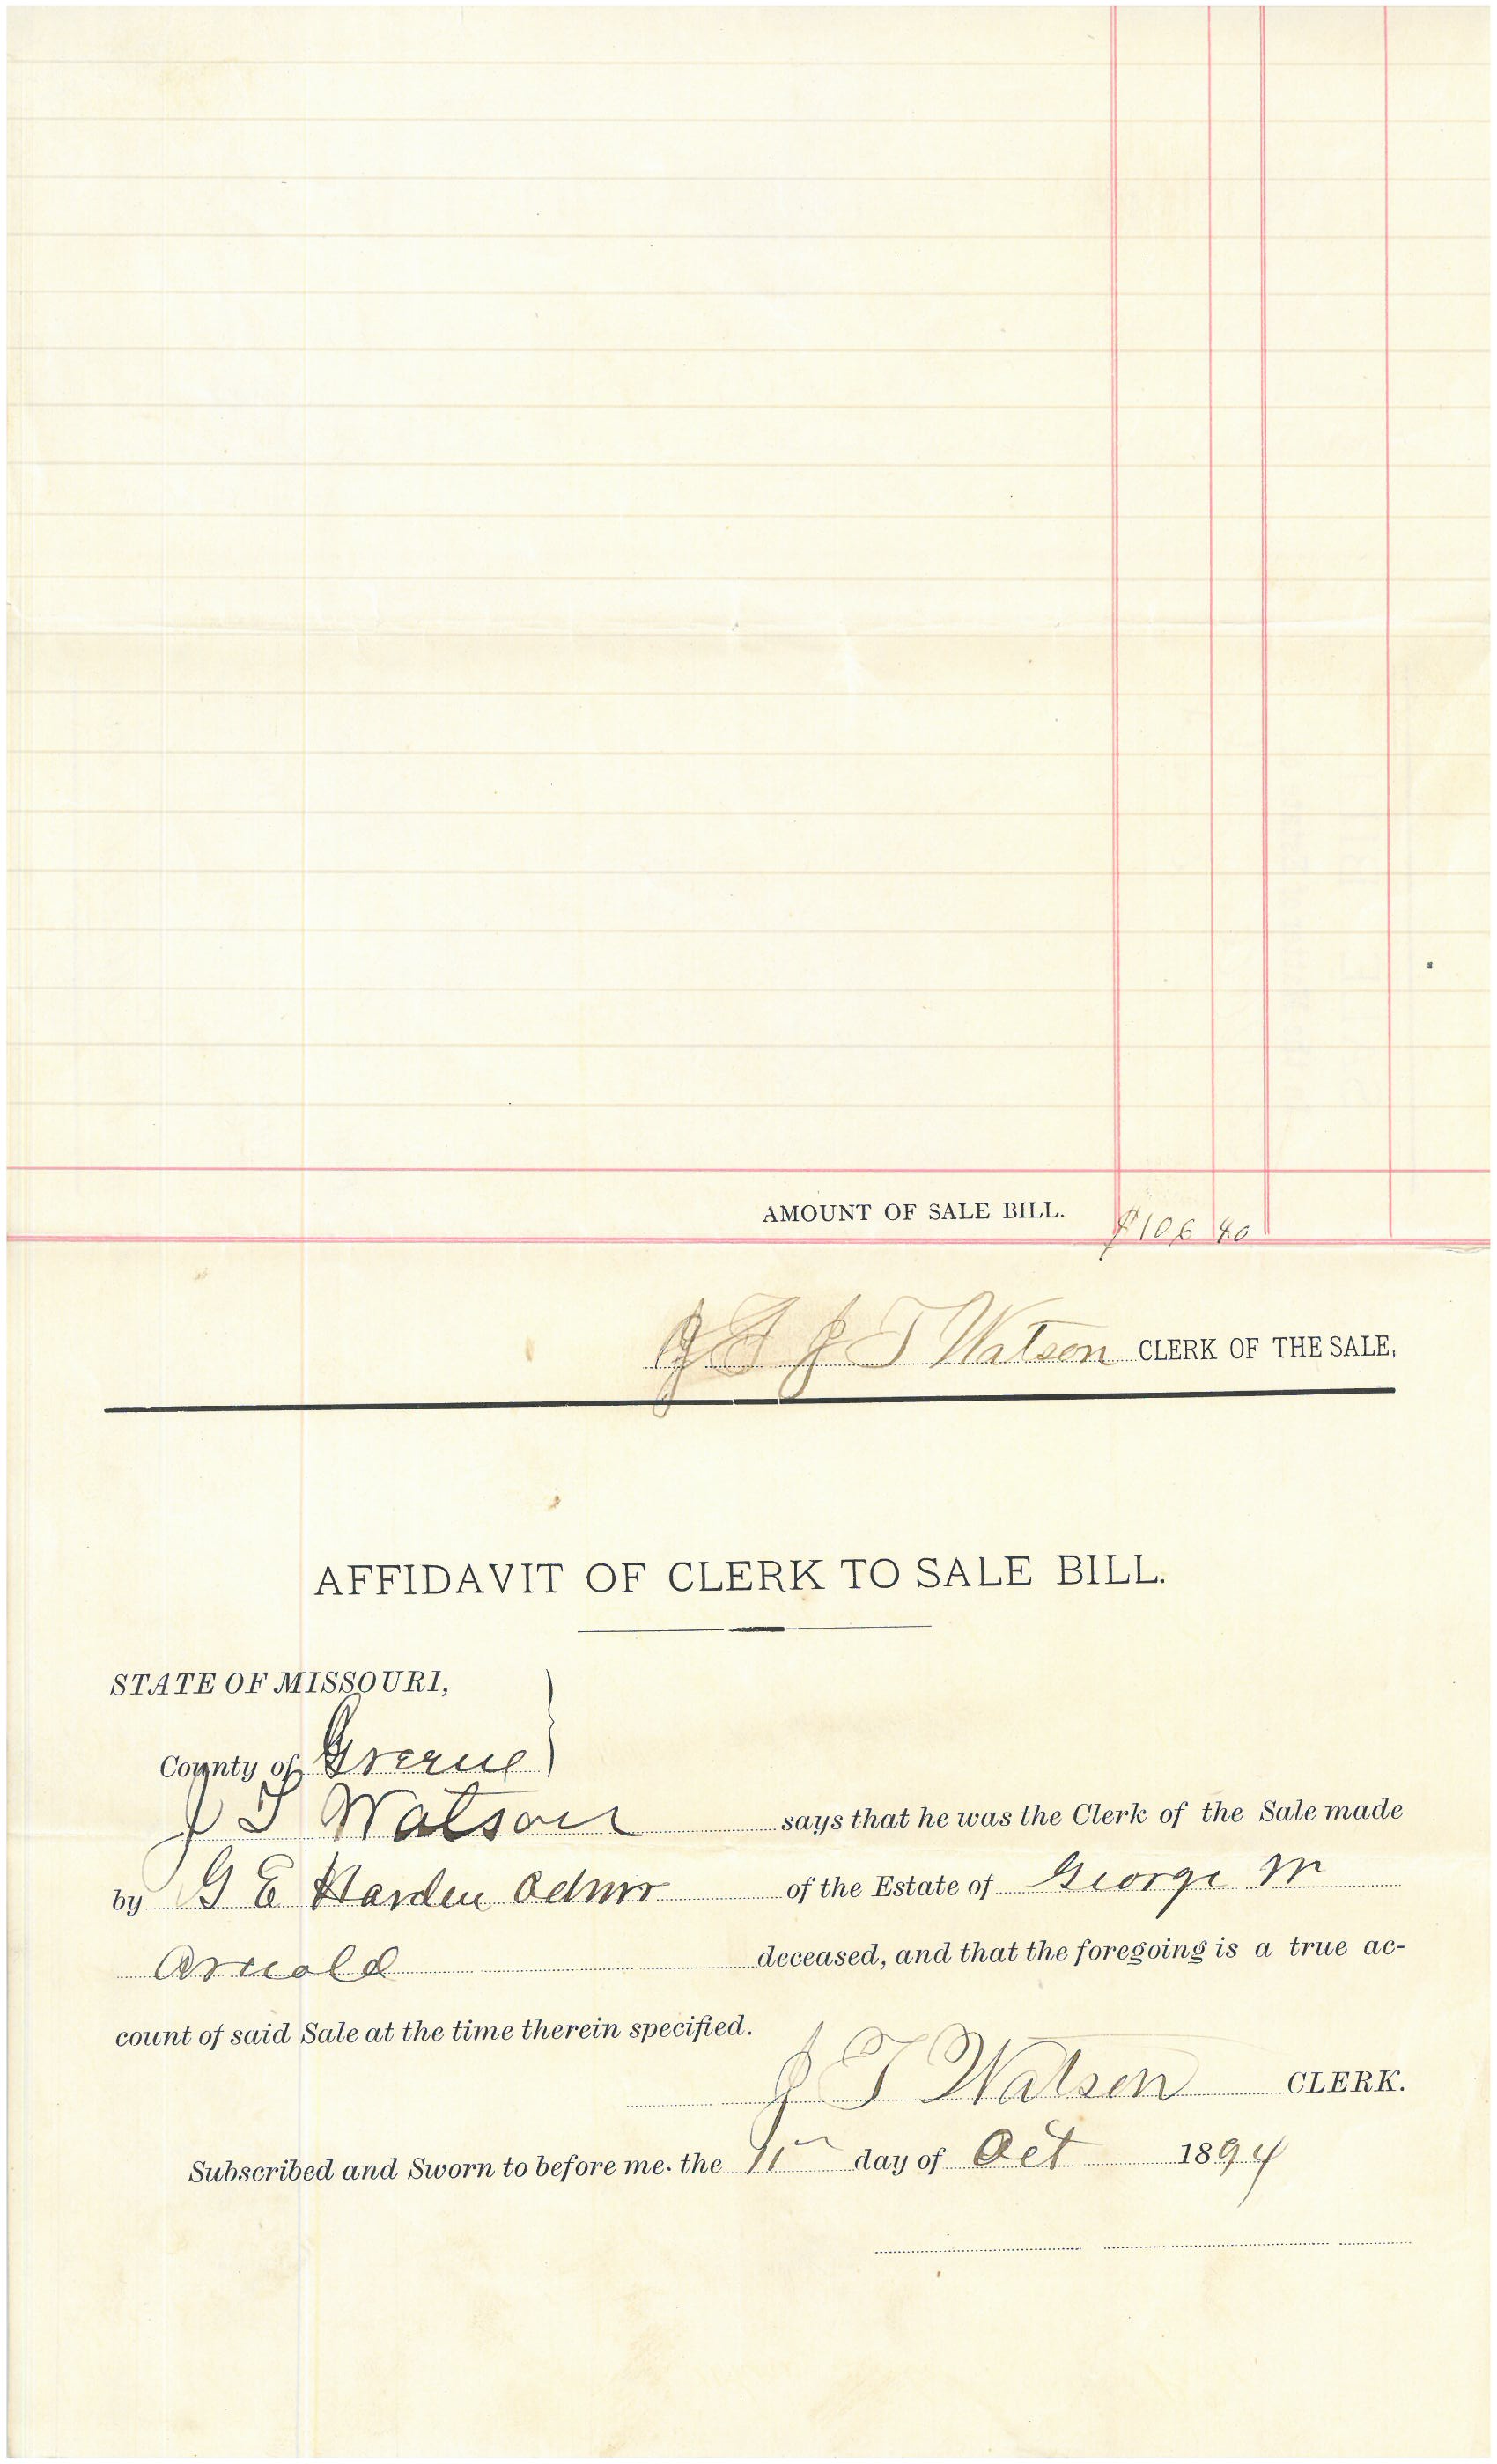 AMOUNT OF SALE BILL. $106 40
J T Watson CLERK OF THE SALE,
AFFIDAVIT OF CLERK TO SALE BILL.
STATE OF MISSOURI,
County of Greene
J T Watson says that he was the Clerk of the Sale made
by G E Harden Admr of the Estate of George M
Arnold deceased, and that the foregoing is a true ac-
count of said Sale at the time therein specified.
J T Watson CLERK.
Subscribed and Sworn to before me. the 11th day of Oct 1894